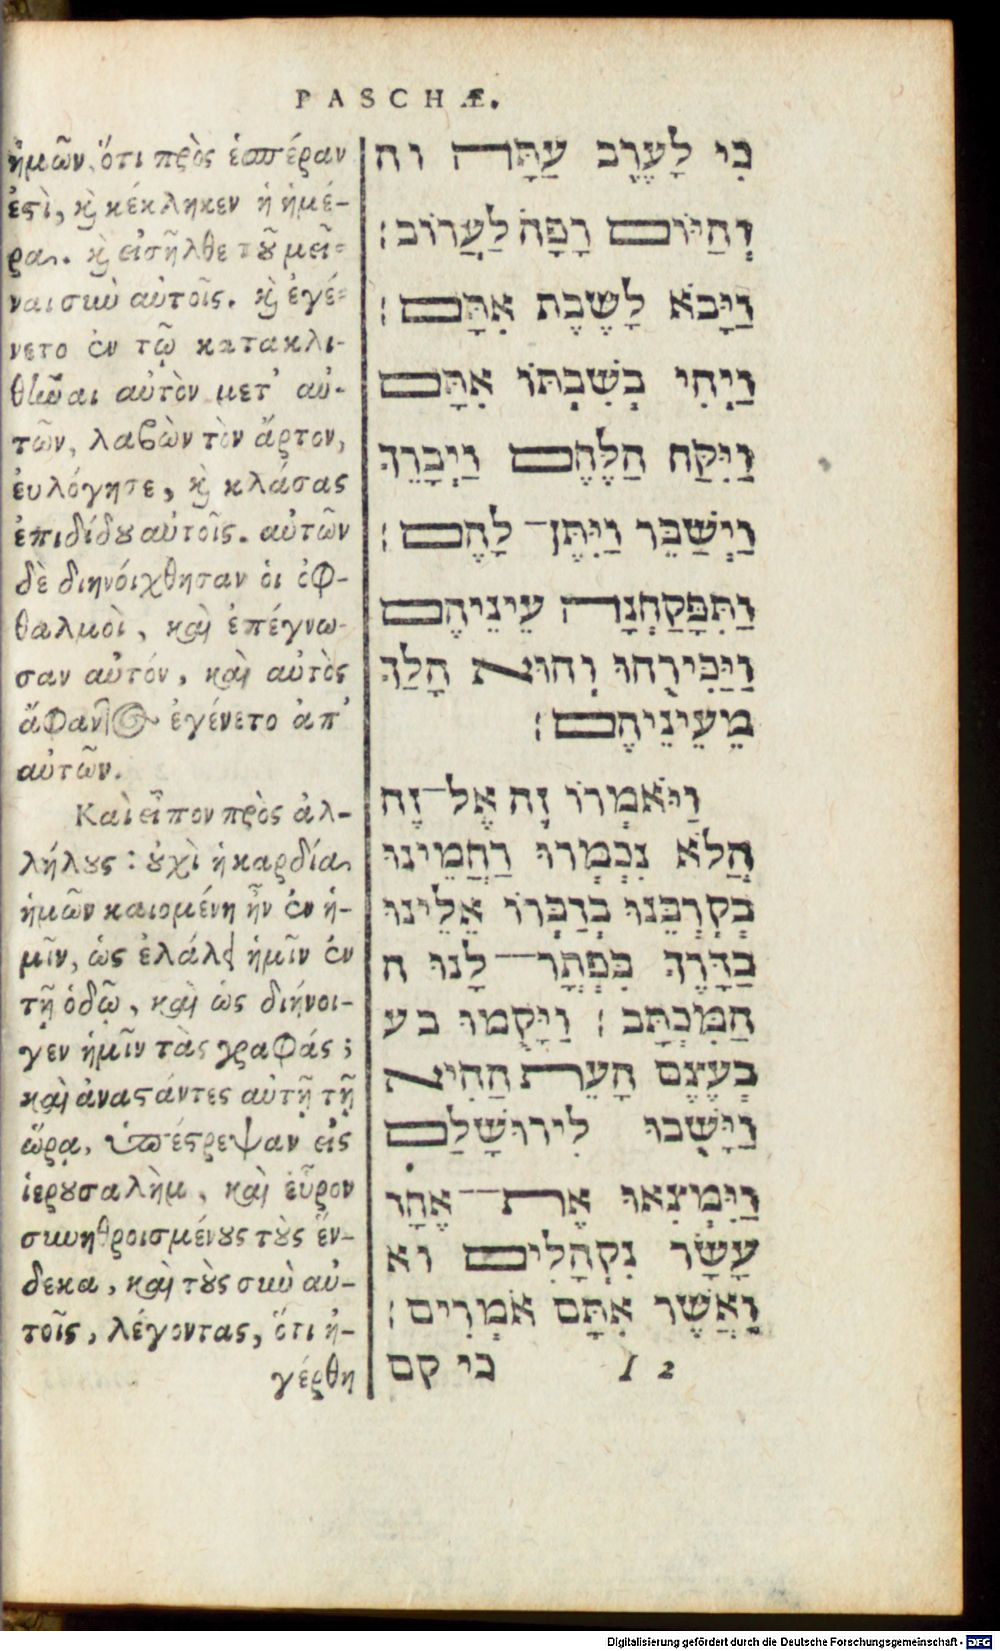 PASCHÆ.
ἡμῶν, ὅτι πρὸς ἑσπέραν
ἐστὶ, καὶ κέκληκεν ἡ ἡμέ-
ρα. καὶ εἰσῆλθε τοῦ μεῖ-
ναι σιωὺ αὐτοῖς. καὶ ἐγέ-
νετο ἐν τῷ κατακλι-
θῆναι αὐτὸν μετ' αὐ-
τῶν, λαβὼν τὸν ἄρτον,
ἐυλόγησε, καὶ κλάσας
ἐπιδίδου αὐτοῖς. αὐτῶν
δὲ διηνόιχθησαν ὁι ὀφ-
θαλμοὶ, καὶ ἐπέγνω-
σαν αὐτόν, καὶ αὐτὸς
ἄφαντος ἐγένετο ἀπ'
αὐτῶν.
Καὶ εἶπον πρὸς ἀλ-
λήλους: οὐχὶ ἡ καρδία
ἡμῶν καιομένη ἦν ἐν ἡ-
μῖν, ὡς ἐλάλει ἡμῖν ἐν
τῇ ὁδῷ, καὶ ὡς διήνοι-
γεν ἡμῖν τὰς γραφάς;
καὶ ἀναστάντες αὐτῇ τῇ
ὥρᾳ, ὑπέστρεψαν εἰς
ἱερουσαλὴμ, καὶ εὗρον
συνηθροισμένους τοὺς ἕν-
δεκα, καὶ τοὺς σὺν αὐ-
τοῖς, λέγοντας, ὅτι ἠ-
γέρθη
כִּי לָעֶרֶב עַתָּה וה
וְהַיּוֹם רָפָה לַעֲרוֹב:
וַיָּבֹא לָשֶׁבֶת אִתָּם:
וַיְהִי בְּשִׁבְתּוֹ אִתָּם
וַיִּקַּח הַלֶּחֶם וַיְבָרֵךְ
וַיְשַׁבֵּר וַיִּתֶּן־ לָהֶם:
וַתִּפָּקַחְנָה עֵינֵיהֶם
וַיַּכִּירֻהוּ וְהוּא הָלַךְ
מֵעֵינֵיהֶם:
וַיּאֹמְרוֹ זֶה אֶל־זֶה
הֲלֹא נִכְמְרוּ רַחֲמֵינוּ
בְּקִרְבֵּנוּ בְּדַבְּרוֹ אֵלֵינוּ
בַּדֶּרֶךְ כִּפְתָר־ לָנוּ ה
הַמִּכְתָּב: וַיָּקֻמוּ בע
בְּעֶצֶם הָעֵת הַהִיא
וַיָּשֻׁבוּ לִירוּשָׁלַםִ
וַיִּמְצְאוּ אֶת־ אֶחָד
עָשָׂר נִקְהָלִים וא
וַאֲשֶׁר אִתָּם אֹמְרִים:
l 2 כי קם
Digitalisierung gefördert durch die Deutsche Forschungsgemeinschaft - DFG